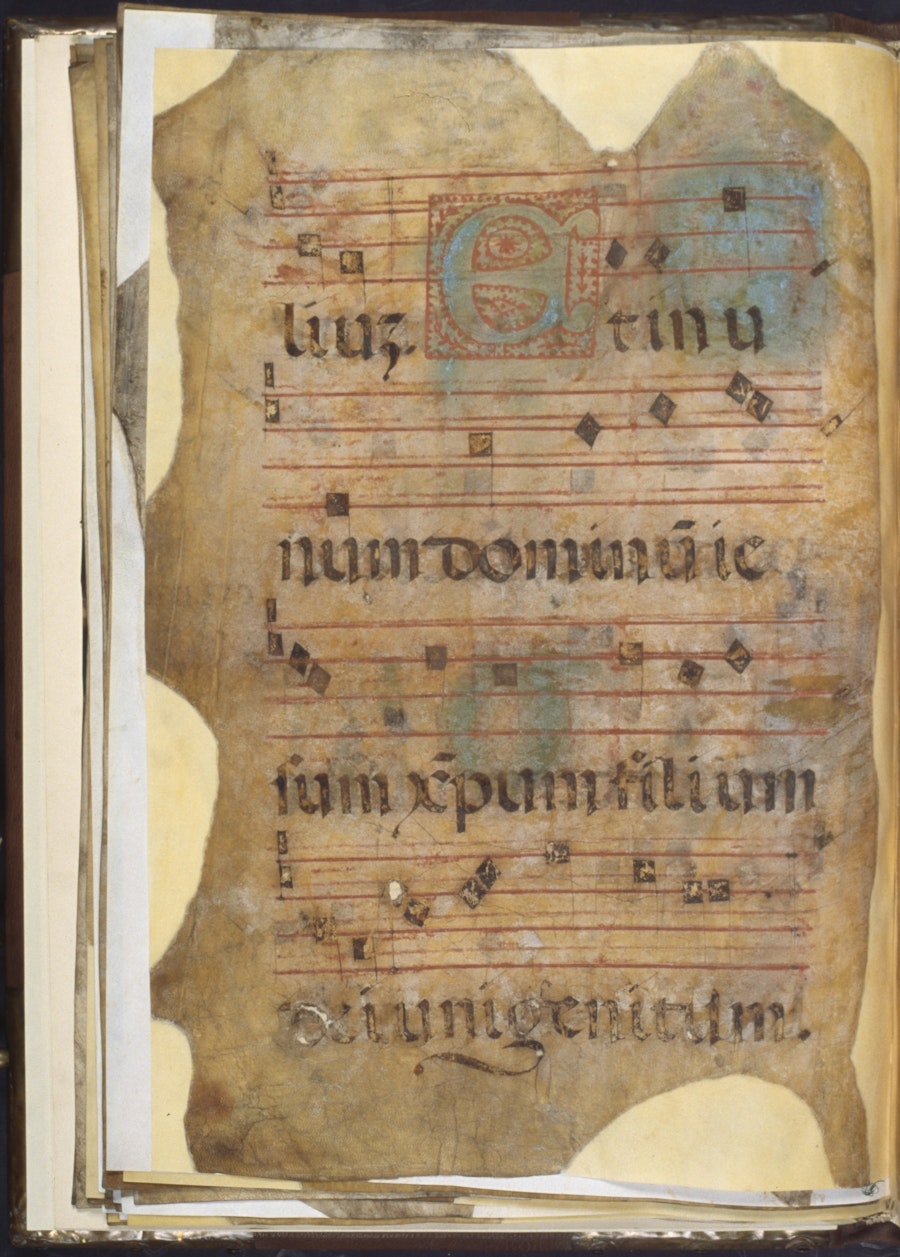 liuz. Et in u
num dominū ie
sum xp̄um filium
dei unigenitum.